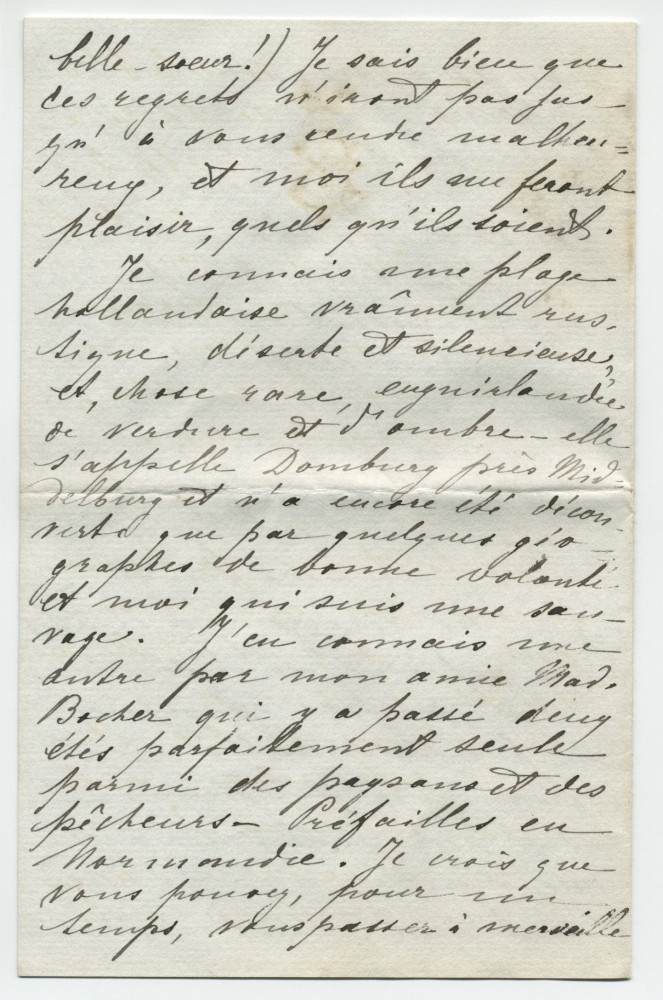 belle-soeur!) Je sais bien que
ces regrets n'iront pas jus-
qu'à vous rendre malheu=
reux, et moi ils me feront
plaisir, quels qu'ils soient.
Je connais une plage
hollandaise vraîment rus-
tique, déserte et silencieuse,
et, chose rare, enguirlandée
de verdure et d'ombre - elle
s'appelle Domburg près Mid-
delburg et n'a encore été décou-
verte que par quelques géo-
graphes de bonne volonté
et moi qui suis une sau-
vage. J'en connais une
autre par mon amie Mad.
Bocher qui y a passé deux
étés parfaitement seule
parmi des paysans et des
pêcheurs - Préfailles en
Normandie. Je crois que
vous pouvez, pour un
temps, vous passer à merveille